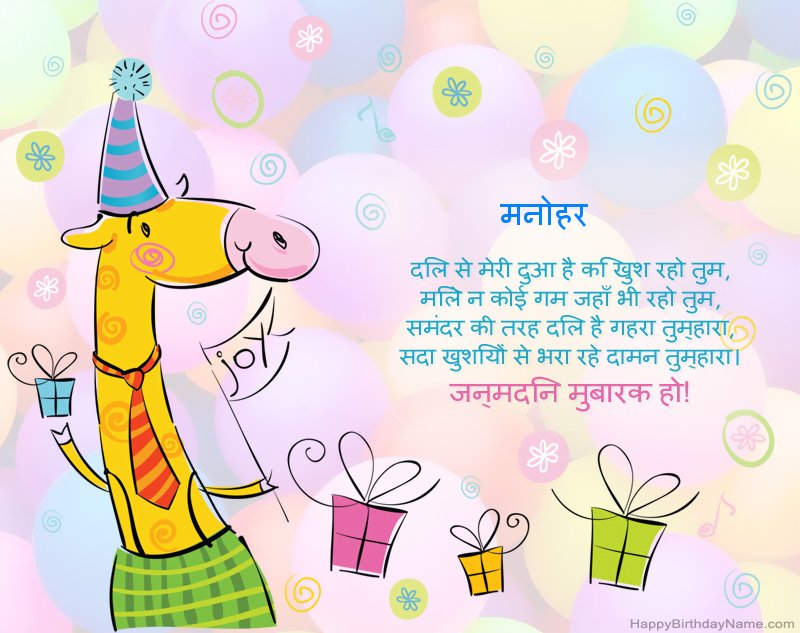 मनोहर
दलि से मेरी दुआ है कि खुश रहो तुम,
मलिे न कोई गम जहाँ भी रहो तुम,
समंदर की तरह दलि है गहरा तुम्हारा,
सदा खुशयिों से भरा रहे दामन तुम्हारा।
जन्मदनि मुबारक हो!
joy
HappyBirthdayName.com